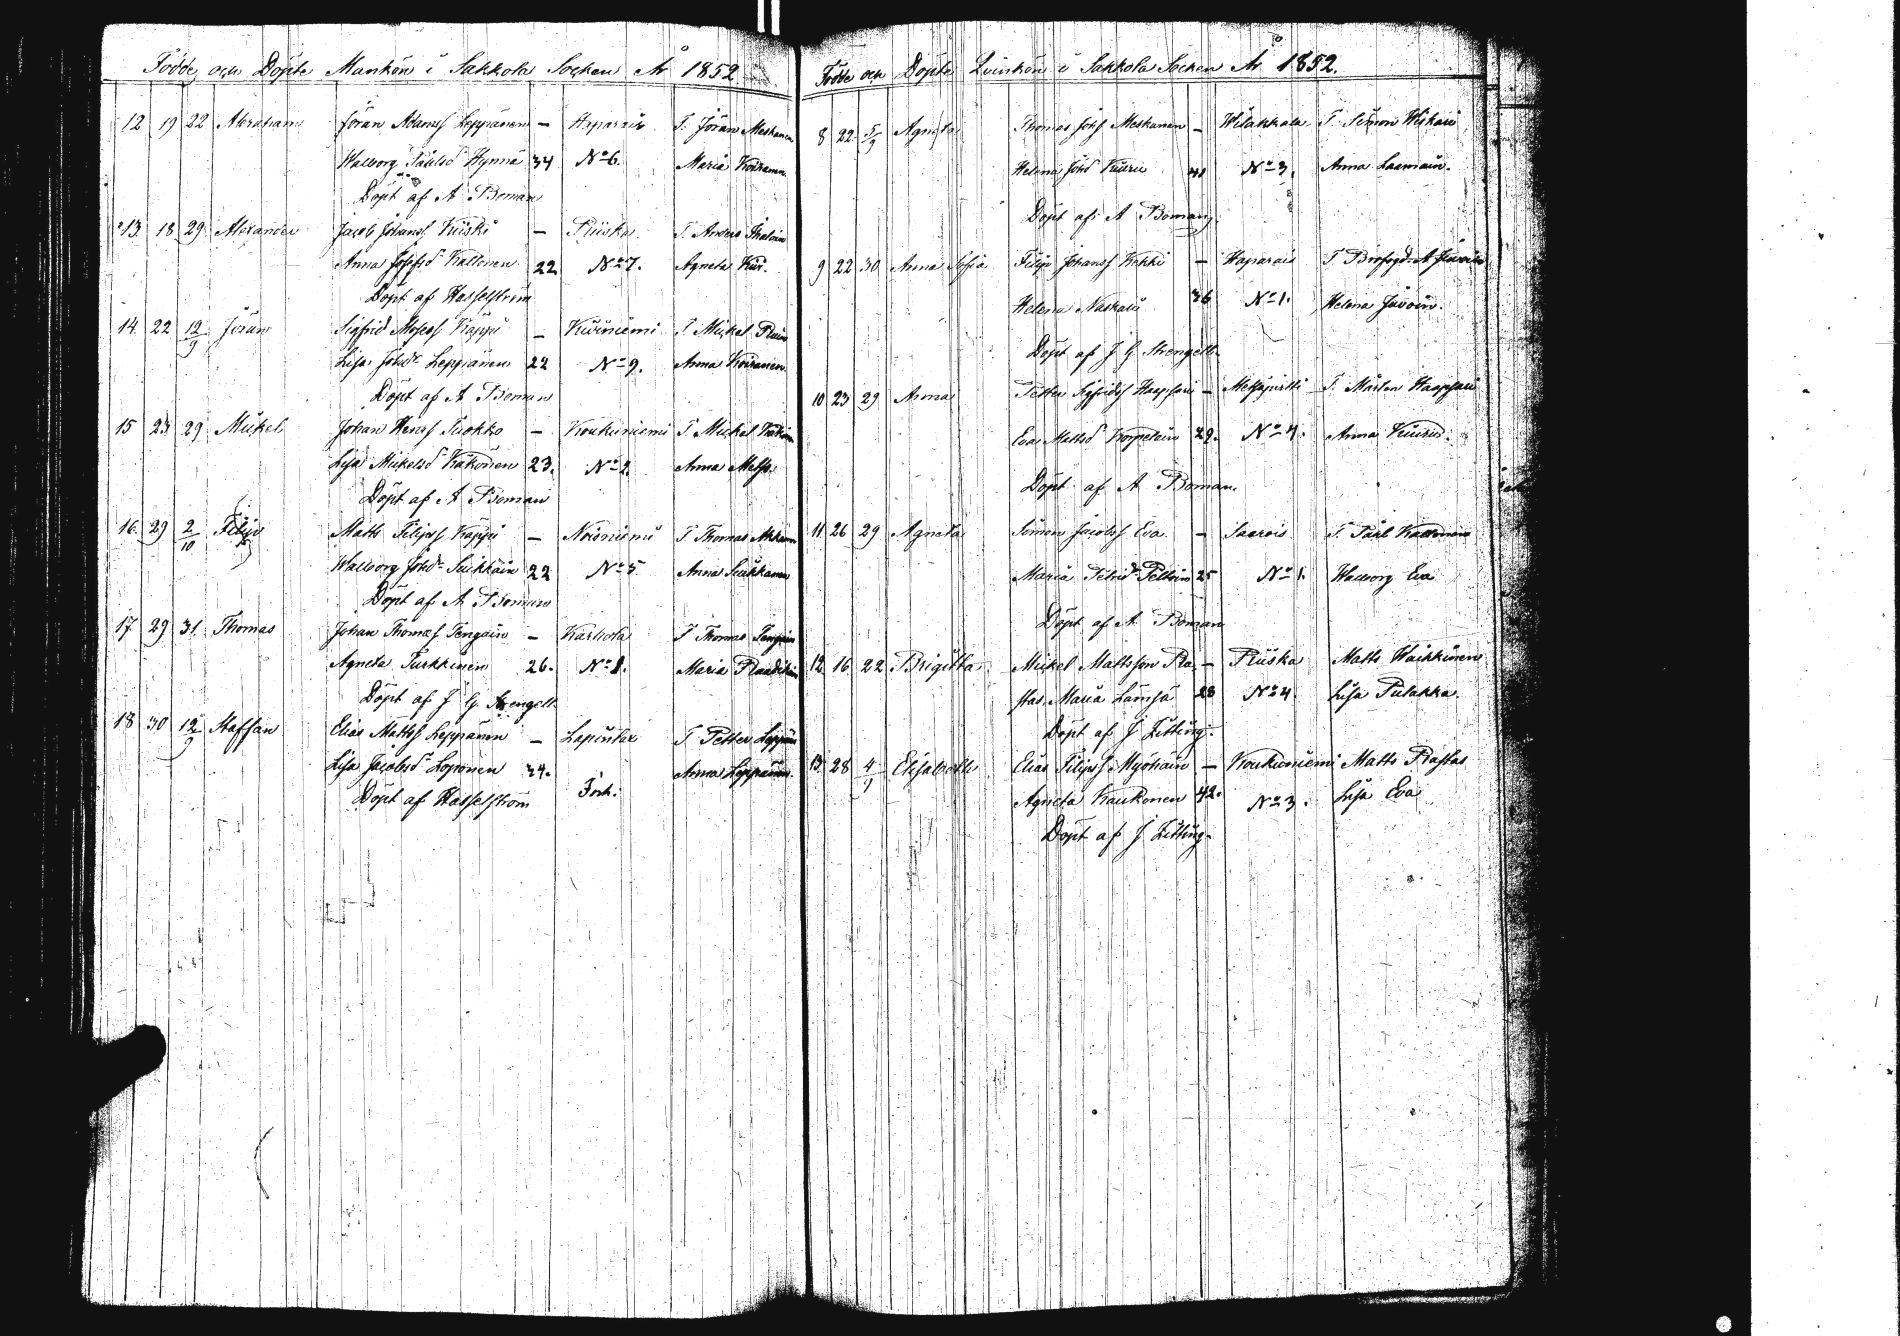 Födde och Döpte Mankön i Sakkola Socken År 1852
12 19 22 Abraham Jöran Adamsf Leppänen — Haparais T. Jöran Meskanen
Walborg Påulsd Hynnä 34 No 6. Maria Koiranen
Döpt af A Boman
13 18 29 Alexander Jacob Johansf Kiiski — Riiska T. Anders
Anna Josefsd Kallonen 22 No 7. Agneta
Döpt af Hasselström
14. 22 12/9 Jöran Sigfrid Mosesf Käppi — Kiviniemi T Mickel
Lisa Johsd Leppänen 22 No 9. Anna Koiranen
Döpt af A Boman
15 23 29 Mickel Johan Henrsf Suokko — Koukuniemi T Mickel
Lisa Mickelsd Kakonen 23. No 2 Anna
Döpt af A Boman
16. 29 2/10 Filip Matts Filipsf Käppi — Noisniemi T Thomas
Walborg Johsd Suikkain 22 No 5 Anna Suikkanen
Döpt af A Boman
17 29 31. Thomas Johan Thomasf Tengain — Karhola T Thomas Tengain
Agneta Turkkinen 26. No 1. Maria
Döpt af J G Strengell
18 30 12/9 Staffan Elias Mattsf Leppänen — T Petter Leppän
Lisa Jacobsd Loponen 34. Torp: Anna Leppänen
Döpt af Hasselström
Födde och Döpte Qvinkön i Sakkola Socken År 1852.
8 22 5/9 Agneta Thomas Johsf Meskanen — Wilakkala T Simon
Helena Johsd Kiuru 41 No 3. Anna Laamain.
Döpt af A Boman
9 22 30 Anna Sofia Filip Johansf Kekki — Haparais T
Helena Naskali 36 No 1. Helena
Döpt af J G Strengell
10 23 29 Anna Petter Sigfridsf Haapsari — Metsäpirtti T. Mårten Haapsari
Eva Mattsd Korpelain 29. No 4. Anna Kiuru.
Döpt af A Boman.
11 26 29 Agneta Simon Jacobsf Eva — Saarois T. Påhl Kattonen
Maria Petrisd Peltoin 25 No 1. Walborg Eva
Döpt af A. Boman
12 16 22 Brigitta Mickel Mattsson Ra — Riiska Matts Haikkinen
stas, Maria Lämsä 28 No 4. Lisa Pulakka.
Döpt af J Zitting.
13 28 4/9 Elisabeth Elias Filipsf Myöhäin — Koukuniemi Matts Rastas
Agneta Kaukonen 42. No 3. Lisa Eva
Döpt af J Zitting.